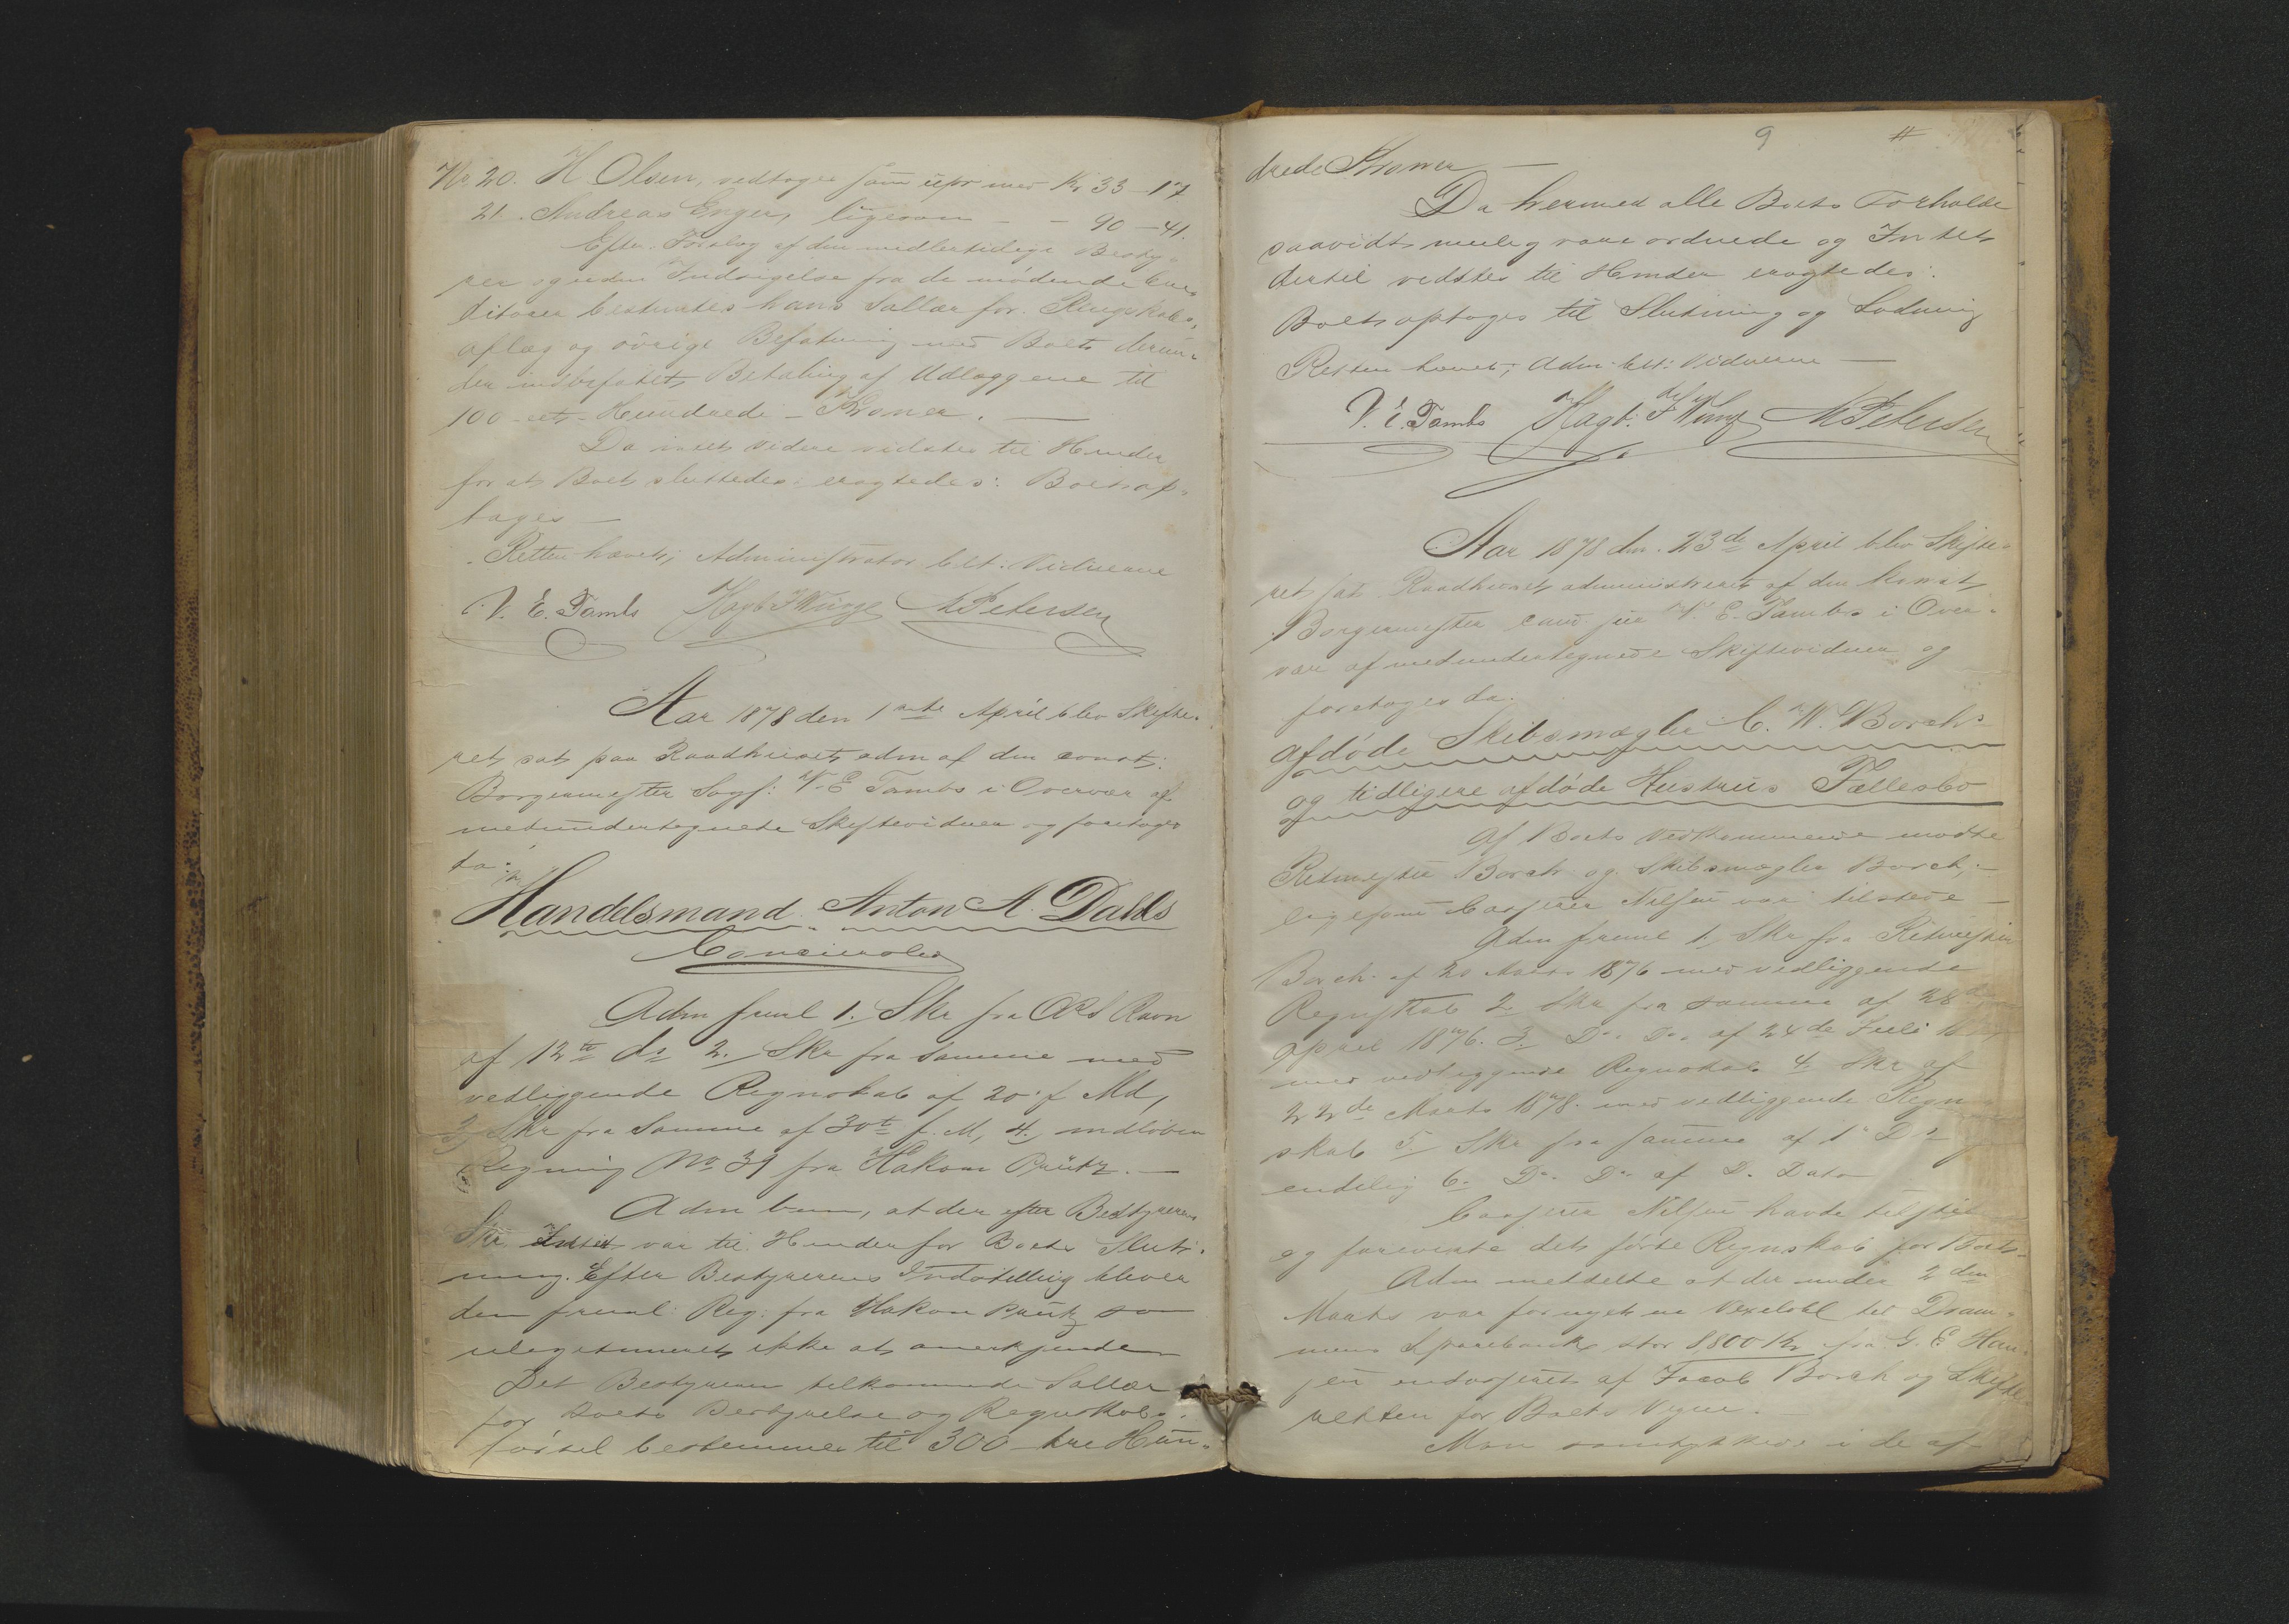 No 20. H Olsen, vedtoges som upr med Kr 33-17
21. Andreas Enger, ligesom - - 90-41.
Efter Forslag af den midlertidige Besty-
rer og uden Indsigelse fra de mødende Cre-
ditorer bestemtes hans Sallær for Regnskabs-
aflæg og øvrige Befatning med Boets derun-
der indbefattet Betaling af Udlæggene til
100 - et Hundrede - Kroner.
Da intet videre vidstes til Hinder
for at Boet sluttedes: eragtedes: Boet op-
tages
Retten hævet; Administrator belt: Vidnerne
V. E. Tambs Hagb. F Winge A Petersen
Aar 1878 den 1ste April blev Skifte-
ret sat paa Raadhuset adm af den const:
Borgermester Sagf: V. E Tambs i Overvær af
medundertegnede Skiftevidner og foretoges
da:
Handelsmand Anton A. Dahls
Concursbo
Adm freml 1. Skr fra ORS Ravn
af 12te ds 2. Skr fra samme med
vedliggende Regnskab af 20 f Md,
3, Skr fra Samme af 30t f. M, 4. indløben
Regning No 39 fra Hakon Prütz.
Adm bem, at der efter Bestyrerens
Skr Intet var til Hinder for Boets Slut-
ning. Efter Bestyrerens Indstilling bliver
den freml: Reg: fra Hakon Prütz som
ulegitimeret ikke at anerkjende
Det Bestyreren tilkommende Sallær
for Boets Bestyrelse og Regnskabs-
førsel bestemmes til 300 - tre Hun-
9 #
drede Kroner
Da hermed alle Boets Forholde
saavidt mulig vare ordnede og Intet
dertil vidstes til Hinder eragtedes:
Boet optages til Slutning og Lodning
Retten hævet; Adm. belt: Vidnerne
V. E. Tambs Hagb. F Winge A Petersen
Aar 1878 den 23de April blev Skifte-
ret sat Raadhuset administreret af den konst
Borgermester cand jur V. E. Tambs i Over-
vær af medundertegnede Skiftevidner og
foretoges da:
afdøde Skibsmægler C. W. Borchs
og tidligere afdøde Hustrus Fællesbo
Af Boets Vedkommende mødte
Ritmester Borch og Skibsmægler Borch,
ligesom Casserer Nilsen var tilstede
Adm freml 1, Skr fra Ritmester
Borch af 20 Marts 1876 med vedliggende
Regnskab 2 Skr fra samme af 28de
April 1876. 3. Do. Do. af 24de Juli
med vedliggende Regnskab 4 Skr af
22de Marts 1878 med vedliggende Regn-
skab 5. Skr fra samme af 1 Ds
endelig 6. Do. Do af D. Dato
Casserer Nilsen havde
og foreviste det førte Regnskab for Boet.
Adm meddelte at der under 2den
Marts var fornyet en Vexelobl til Dram-
mens Sparebank stor 8,800 Kr fra G. E Han-
sen endosseret af Jacob Borch og Skifte-
retten for Boets Vegne.
Man samtykkede i de af